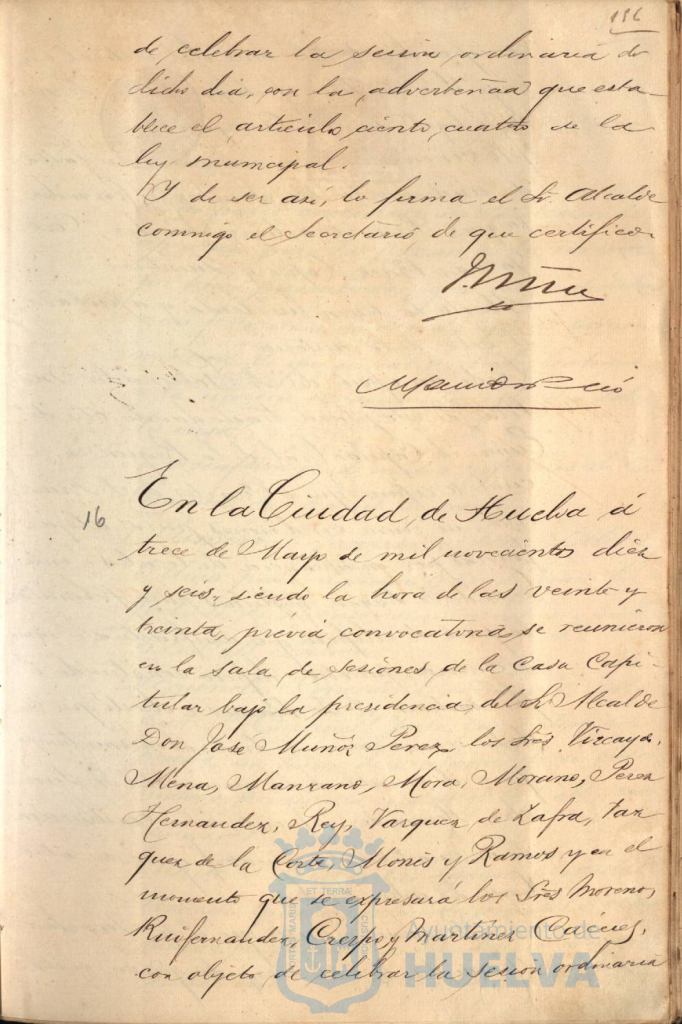 196
de celebrar la sesión ordinaria de
dicho dia, con la advertencia que esta-
blece el articulo ciento cuatro de la
ley municipal.
Y de ser así, lo firma el Sr. Alcalde
conmigo el Secretario de que certifico.
16
En la Ciudad de Huelva á
trece de Mayo de mil novecientos diez
y seis, siendo la hora de las veinte y
treinta, prévia convocatoria, se reunieron
en la sala de sesiones de la Casa Capi-
tular bajo la presidencia del Sr. Alcalde
Don José Muñoz Perez, los Sres. Vizcaya,
Mena, Manzano, Mora, Morano, Perez
Hernandez, Rey, Vazquez de Zafra, Vaz
quez de la Corte, Monís y Ramos y en el
momento que se expresará los Sres Moreno,
Ruifernandez, Crespo y Martinez
con objeto de celebrar la sesión ordinaria
ET TERRÆ
Ayuntamiento de
HUELVA